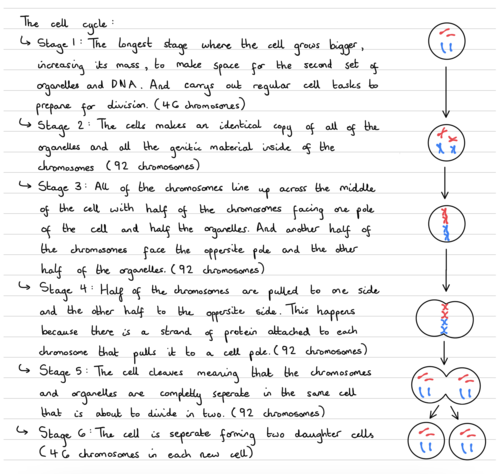 The cell cycle:
↳ Stage 1: The longest stage where the cell grows bigger,
increasing its mass, to make space for the second set of
organelles and DNA. And carrys out regular cell tasks to
prepare for division. (46 chromosomes)
↳ Stage 2: The cells makes an identical copy of all of the
organelles and all the genitic material inside of the
chromosomes (92 chromosomes)
↳ Stage 3: All of the chromosomes line up across the middle
of the cell with half of the chromosomes facing one pole
of the cell and half the organelles. And another half of
the chromosomes face the oppersite pole and the other
half of the organelles. (92 chromosomes)
↳ Stage 4: Half of the chromosomes are pulled to one side
and the other half to the oppersite side. This happens
because there is a strand of protein attached to each
chromosome that pulls it to a cell pole. (92 chromosomes)
↳ Stage 5: The cell cleaves meaning that the chromosomes
and organelles are completly seperate in the same cell
that is about to divide in two. (92 chromosomes)
↳ Stage 6: The cell is seperate forming two daughter cells
(46 chromosomes in each new cell)